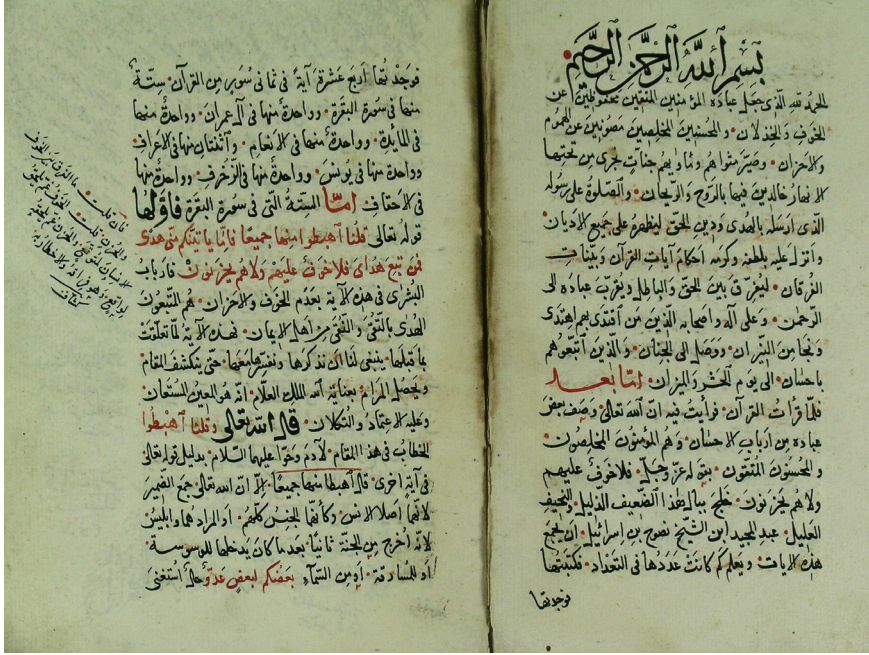 بسم الله الرحمن الرحيم
الحمد لله الذى جعل عباده المؤمنين المتقين محفوظين عن
الخوف والخذلان والمحسنين المخلصين مصونين عن الهموم
والاحزان وصير مثواهم ومأويهم جنات تجرى من تحتها
الانهار خالدين فيها بالروح والريحان والصلوة على رسوله
الذى ارسله بالهدى ودين الحق ليظهره على جميع الاديان
وانزل عليه بلطفه وكرمه احكام آيات القرآن وبينات
الفرقان ليفرق بين الحق والباطل ويقرب عباده الى
الرحمن وعلى آله واصحابه الذين من اقتدى بهم اهتدى
ونجا من النيران ووصل الى الجنان والذين اتبعوهم
باحسان الى يوم الحشر والميزان امّا بعد
فلما قرأت القرآن فرأيت فيه ان الله تعالى وصف بعض
عباده من ارباب الاحسان وهم المؤمنون المخلصون
والمحسنون المتقون بقوله عز وجل فلا خوف عليهم
ولا هم يحزنون خلج ببال هذا الضعيف الذليل والنحيف
العليل عبد المجيد ابن الشيخ نصوح بن اسرائيل ان يجمع
هذه الايات ويعلم كم كانت عددها فى التعداد فكتبتها
فوجدتها
فوجدتها اربع عشرة آية فى ثمانى سور من القرآن ستة
منها فى سورة البقرة وواحدة منها فى آل عمران وواحدة منها
فى المايدة وواحدة منها فى الانعام واثنتان منها فى الاعراف
وواحدة منها فى يونس وواحدة منها فى الزخرف وواحدة منها
فى الاحقاف امّا الستة التى فى سورة البقرة فاولها
قوله تعالى قلنا اهبطوا منها جميعا فامّا يأتينكم منى هدى
فمن تبع هداى فلا خوف عليهم ولا هم يحزنون فارباب
البشرى فى هذه الآية بعدم الخوف والاحزان هم المتبعون
الهدى بالتقى والنقى من اهل الايمان فهذه الآية لما تعلقت
بما قبلها ينبغى لنا ان نذكرها ونفسرها معها حتى ينكشف المقام
ويحصل المرام بعناية الله الملك العلام انه هو المعين المستعان
وعليه الاعتماد والتكلان قال الله تعالى وقلنا اهبطوا
الخطاب فى هذا المقام لآدم وحوا عليهما السلام بدليل قوله تعالى
فى آية اخرى قال اهبطا منها جميعا الا ان الله تعالى جمع الضمير
لانهما اصلا الانس وكأنهما الجنس كلهم او المراد هما وابليس
لانه اخرج من الجنة ثانيا بعد ما كان يدخلها للوسوسة
او للمسارقة او من السماء بعضكم لبعض عدو حال استغنى
فان قلت ما الفرق بين الخوف
والحزن قلت الخوف غم يلحق
الانسان لمتوقع والحزن غم يلحق
لواقع وهو فراته
كشاف